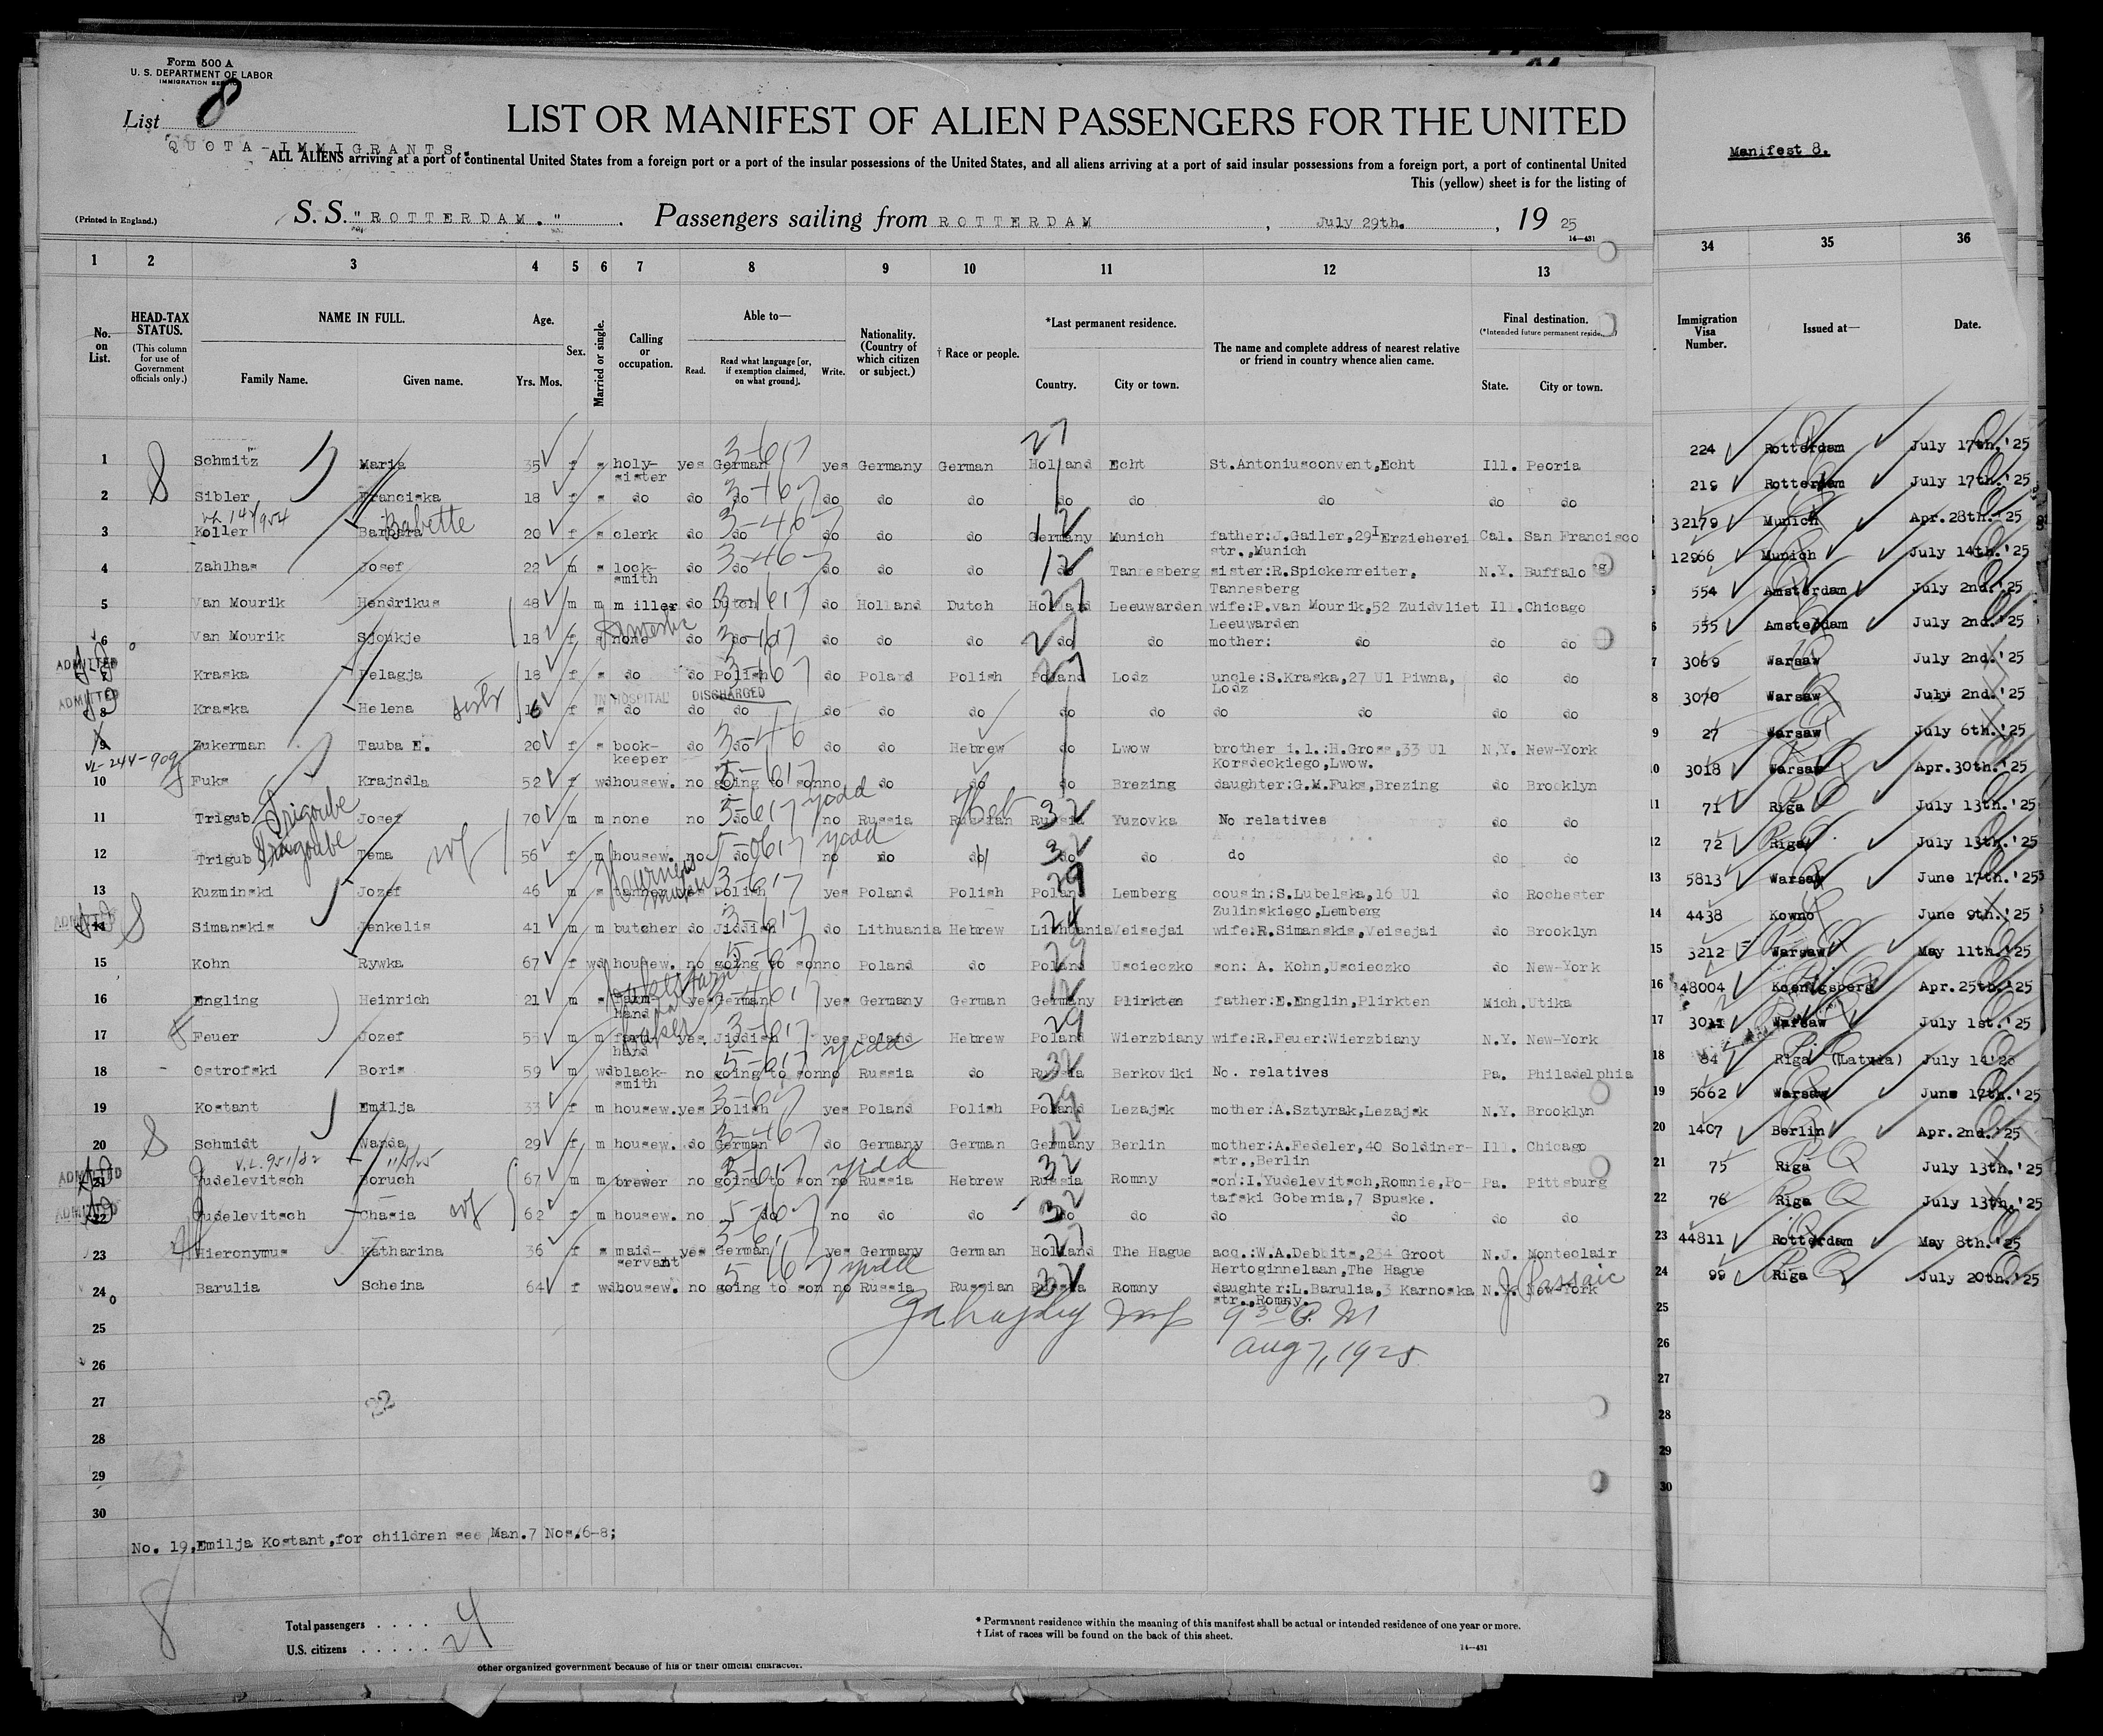 Form 500 A
U. S. DEPARTMENT OF LABOR
IMMIGRATION
List 8
QUOTA-IMMIGRANTS.
LIST OR MANIFEST OF ALIEN PASSENGERS FOR THE UNITED
ALL ALIENS arriving at a port of continental United States from a foreign port or a port of the insular possessions of the United States, and all aliens arriving at a port of said insular possessions from a foreign port, a port of continental United
This (yellow) sheet is for the listing of
Manifest 8.
(Printed in England.) S. S. "ROTTERDAM." Passengers sailing from ROTTERDAM, July 29th., 19 25
14—431
1 2 3 4 5 6 7 8 9 10 11 12 13 34 35 36
No. on List.
HEAD-TAX STATUS.
(This column for use of Government officials only.)
NAME IN FULL.
Family Name. Given name.
Age.
Yrs. Mos.
Sex.
Married or single.
Calling or occupation.
Able to—
Read. Read what language [or, if exemption claimed, on what ground]. Write.
Nationality. (Country of which citizen or subject.)
† Race or people.
*Last permanent residence.
Country. City or town.
The name and complete address of nearest relative or friend in country whence alien came.
Final destination.
(*Intended future permanent residence.)
State. City or town.
Immigration Visa Number.
Issued at—
Date.
1 Schmitz Maria 35 f s holy-sister yes German yes Germany German Holland Echt St.Antoniusconvent,Echt Ill. Peoria 224 Rotterdam July 17th.'25
2 Sibler Franciska 18 f s do do do do do do do do do do do 219 Rotterdam July 17th.'25
3 Koller Barbara Babette 20 f s clerk do do do do do Germany Munich father:J.Gailer,29I Erzieherei str.,Munich Cal. San Francisco 32179 Munich Apr.28th.'25
4 Zahlhas Josef 22 m s lock-smith do do do do do do Tannesberg sister:R.Spickenreiter, Tannesberg N.Y. Buffalo 12966 Munich July 14th.'25
5 Van Mourik Hendrikus 48 m m miller do Dutch do Holland Dutch Holland Leeuwarden wife:P.van Mourik,52 Zuidvliet Leeuwarden Ill. Chicago 554 Amsterdam July 2nd.'25
6 Van Mourik Sjoukje 18 f s none do do do do do do do mother: do do do 555 Amsterdam July 2nd.'25
ADMITTED
7 Kraska Pelagja 18 f s do do Polish do Poland Polish Poland Lodz uncle:S.Kraska,27 Ul Piwna, Lodz do do 3069 Warsaw July 2nd.'25
ADMITTED IN HOSPITAL DISCHARGED
8 Kraska Helena 16 f s do do do do do do do do do do do do 3070 Warsaw July 2nd.'25
9 Zukerman Tauba E. 20 f s book-keeper do do do do Hebrew do Lwow brother i.l.:H.Gross,33 Ul Korsdeckiego,Lwow. N.Y. New-York 27 Warsaw July 6th.'25
VL-244-909
10 Fuks Krajndla 52 f wd housew. no going to son no do do do Brezing daughter:G.M.Fuks,Brezing do Brooklyn 3018 Warsaw Apr.30th.'25
11 Trigub Trigoube Josef 70 m m none no do yidd no Russia Russian Heb Russia Yuzovka No relatives do do 71 Riga July 13th.'25
12 Trigub Trigoube Tema 56 f m housew. no do yidd no do do do do do do do 72 Riga July 13th.'25
13 Kuzminski Jozef 46 m s Polish yes Poland Polish Poland Lemberg cousin:S.Lubelska,16 Ul Zulinskiego,Lemberg do Rochester 5813 Warsaw June 17th.'25
ADMITTED
14 Simanskis Jenkelis 41 m m butcher do Jiddish do Lithuania Hebrew Lithuania Veisejai wife:R.Simanskis,Veisejai do Brooklyn 4438 Kowno June 9th.'25
15 Kohn Rywka 67 f wd housew. no going to son no Poland do Poland Uscieczko son: A. Kohn,Uscieczko do New-York 3212 Warsaw May 11th.'25
16 Engling Heinrich 21 m s farm-hand yes German yes Germany German Germany Plirkten father:E.Englin,Plirkten Mich. Utika 48004 Koenigsberg Apr.25th.'25
17 Feuer Jozef 55 m m farm-hand baker yes. Jiddish yes Poland Hebrew Poland Wierzbiany wife:R.Feuer:Wierzbiany N.Y. New-York Warsaw July 1st.'25
18 Ostrofski Boris 59 m wd black-smith no going to son no Russia do Russia Berkoviki No. relatives Pa. Philadelphia 84 Riga (Latvia) July 14'25
19 Kostant Emilja 33 f m housew. yes Polish yes Poland Polish Poland Lezajsk mother:A.Sztyrak,Lezajsk N.Y. Brooklyn 5662 Warsaw June 17th.'25
20 Schmidt Wanda 29 f m housew. do German do Germany German Germany Berlin mother:A.Fedeler,40 Soldiner-str.,Berlin Ill. Chicago 1407 Berlin Apr.2nd.'25
ADMITTED
21 Judelevitsch Boruch 67 m m brewer no going to son no Russia Hebrew Russia Romny son:I.Yudelevitsch,Romnie,Po-tafski Gobernia,7 Spuske. Pa. Pittsburg 75 Riga July 13th.'25
ADMITTED
22 Judelevitsch Chasia 62 f m housew. no do no do do do do do do do 76 Riga July 13th.'25
23 Hieronymus Katharina 36 f s maid-servant yes German yes Germany German Holland The Hague acq.:W.A.Debbits,234 Groot Hertoginnelaan,The Hague N.J. Montclair 44811 Rotterdam May 8th.'25
24 Barulia Scheina 64 f wd housew. no going to son no Russia Russian Russia Romny daughter:L.Barulia,3 Karnoska str.,Romny. N.J. New-York Passaic 99 Riga July 20th.'25
25
9 30 P. M
Aug 7, 1925
26
27
22
28
29
30
No. 19,Emilja Kostant,for children see Man.7 Nos.6-8;
8
Total passengers . . . . 24
U.S. citizens . . . . .
* Permanent residence within the meaning of this manifest shall be actual or intended residence of one year or more.
† List of races will be found on the back of this sheet.
14—431
other organized government because of his or their official character.